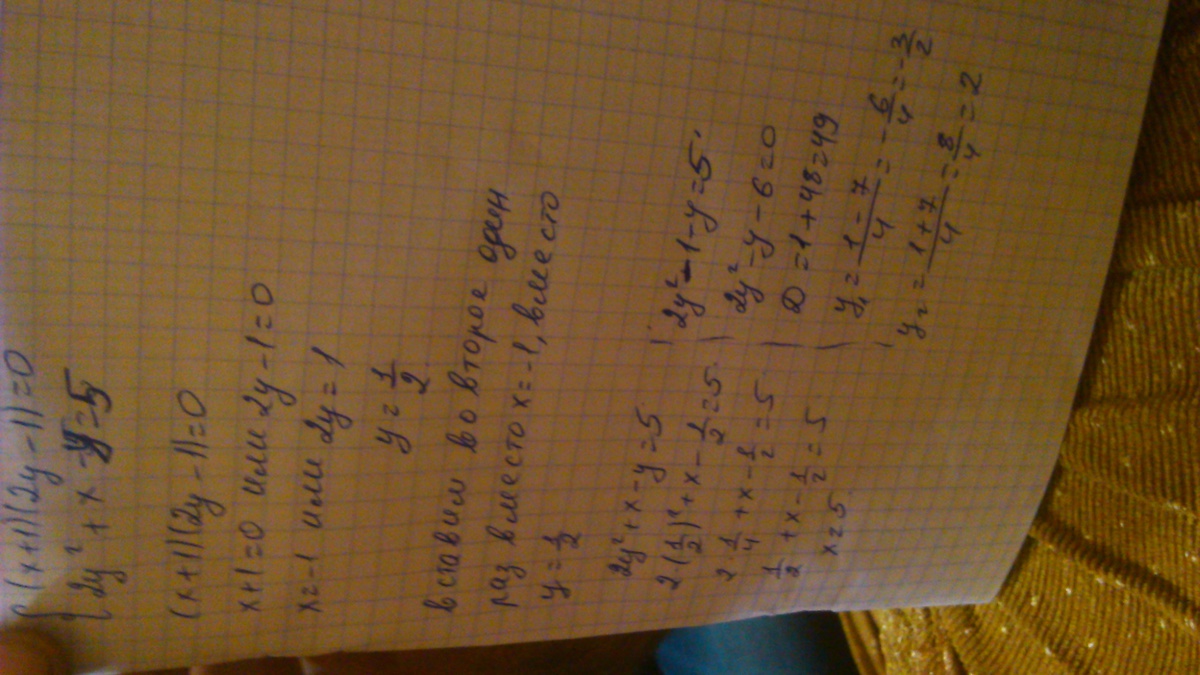 { (x+1)(2y-1)=0
2y² + x - y = 5
(x+1)(2y-1)=0
x+1=0 или 2y-1=0
x=-1 или 2y=1
y=1/2
вставим во второе один
раз вместо x=-1, вместо
y=1/2
2y²+x-y=5
2·(1/2)²+x-1/2=5
2·1/4+x-1/2=5
1/2+x-1/2=5
x=5
2y²-1-y=5
2y²-y-6=0
D=1+48=49
y₁=(1-7)/4=-6/4=-3/2
y₂=(1+7)/4=8/4=2